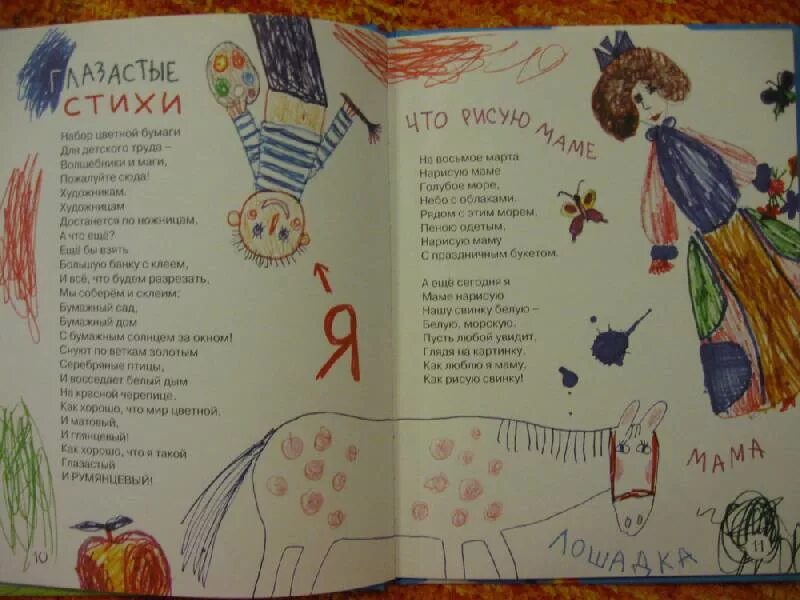 ГЛАЗАСТЫЕ
СТИХИ
Набор цветной бумаги
Для детского труда –
Волшебники и маги,
Пожалуйте сюда!
Художникам,
Художницам
Достанется по ножницам,
А что ещё?
Ещё бы взять
Большую банку с клеем,
И всё, что будем разрезать,
Мы соберём и склеим:
Бумажный сад,
Бумажный дом
С бумажным солнцем за окном!
Снуют по веткам золотым
Серебряные птицы,
И восседает белый дым
На красной черепице.
Как хорошо, что мир цветной,
И матовый,
И глянцевый!
Как хорошо, что я такой
Глазастый
И РУМЯНЦЕВЫЙ!
Я
10
ЧТО РИСУЮ МАМЕ
На восьмое марта
Нарисую маме
Голубое море,
Небо с облаками.
Рядом с этим морем,
Пеною одетым,
Нарисую маму
С праздничным букетом.
А ещё сегодня я
Маме нарисую
Нашу свинку белую –
Белую, морскую.
Пусть любой увидит,
Глядя на картинку,
Как люблю я маму,
Как рисую свинку!
МАМА
ЛОШАДКА
11